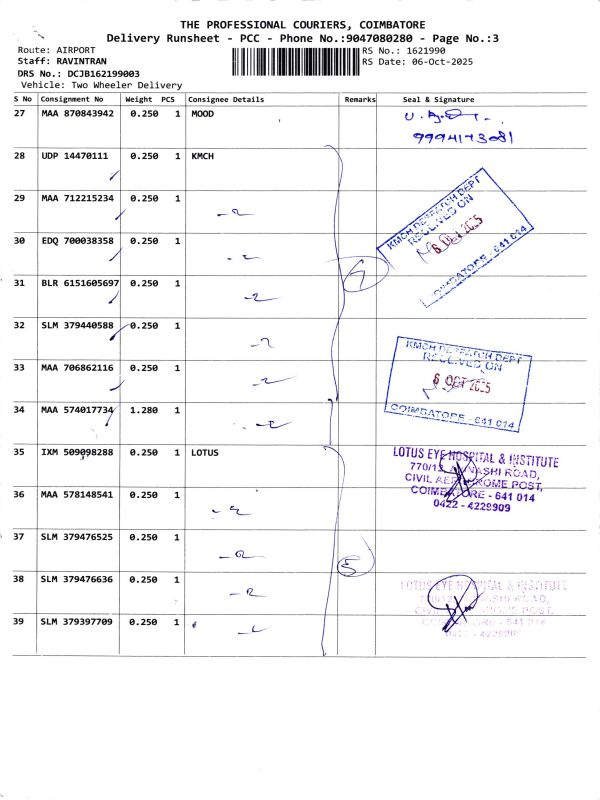 THE PROFESSIONAL COURIERS, COIMBATORE
Delivery Runsheet - PCC - Phone No.:9047080280 - Page No.:3
Route: AIRPORT RS No.: 1621990
Staff: RAVINTRAN RS Date: 06-Oct-2025
DRS No.: DCJB162199003
Vehicle: Two Wheeler Delivery
S No Consignment No Weight PCS Consignee Details Remarks Seal & Signature
27 MAA 870843942 0.250 1 MOOD
28 UDP 14470111 0.250 1 KMCH
29 MAA 712215234 0.250 1
30 EDQ 700038358 0.250 1
KMCH DESPATCH DEPT
RECEIVED ON
COIMBATORE - 641 014
31 BLR 6151605697 0.250 1
32 SLM 379440588 0.250 1
33 MAA 706862116 0.250 1
KMCH DESPATCH DEPT
RECEIVED ON
6 OCT 2025
COIMBATORE - 641 014
34 MAA 574017734 1.280 1
35 IXM 509098288 0.250 1 LOTUS
LOTUS EYE HOSPITAL & INSTITUTE
770/12, AVINASHI ROAD,
CIVIL AERODROME POST,
COIMBATORE - 641 014
0422 - 4229909
36 MAA 578148541 0.250 1
37 SLM 379476525 0.250 1
5
38 SLM 379476636 0.250 1
LOTUS EYE HOSPITAL & INSTITUTE
770/12, AVINASHI ROAD,
CIVIL AERODROME POST,
COIMBATORE - 641 014
0422 - 4229909
39 SLM 379397709 0.250 1